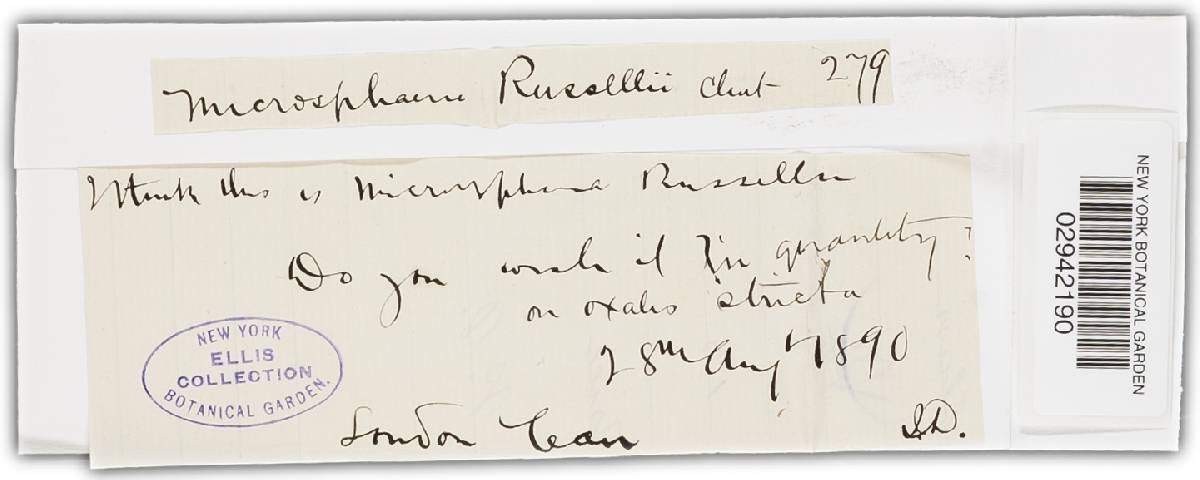 Microsphaera Russellii Clint 279
I think this is Microsphaera Russellii
Do you wish it in quantity?
on oxalis stricta
28th Augt 1890
London Can
J.D.
NEW YORK
ELLIS
COLLECTION
BOTANICAL GARDEN.
NEW YORK BOTANICAL GARDEN
02942190